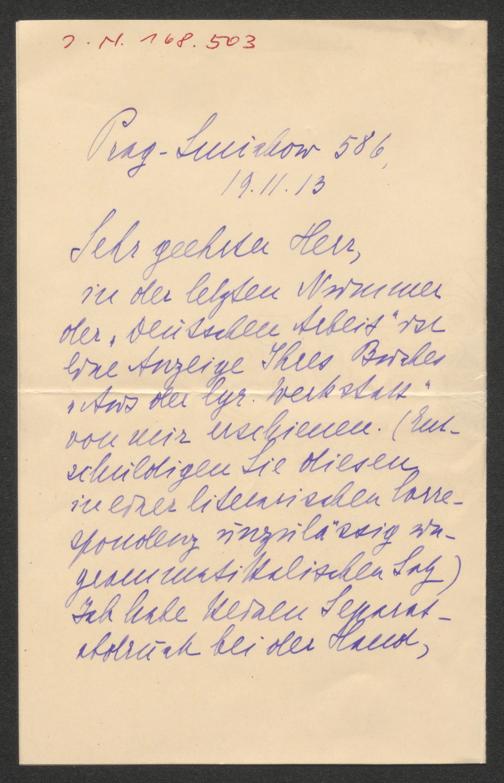 J. N. 168.503
Prag-Smichow 586,
19.11.13
Sehr geehrter Herr,
in der letzten Nummer
der „Deutschen Arbeit" ist
eine Anzeige Ihres Buches
„Aus der lyr. Werkstatt"
von mir erschienen. (Ent-
schuldigen Sie diesen,
in einer literarischen Corre-
spondenz unzulässig un-
grammatikalischen Satz)
Ich habe keinen Separat-
abdruck bei der Hand,